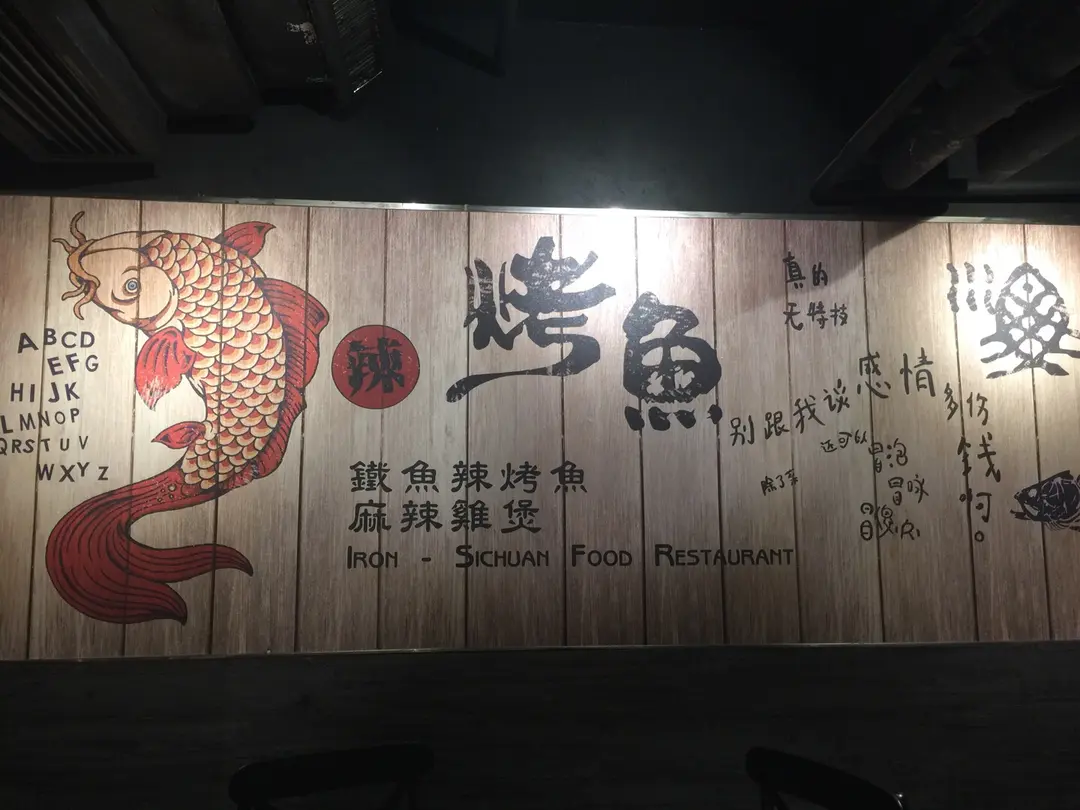 A B C D
E F G
H I J K
L M N O P
Q R S T U V
W X Y Z
辣
烤魚
鐵魚辣烤魚
麻辣雞煲
IRON - SICHUAN FOOD RESTAURANT
真的
无特技
别跟我谈感情
多伤钱啊。
除了
还可以
冒泡